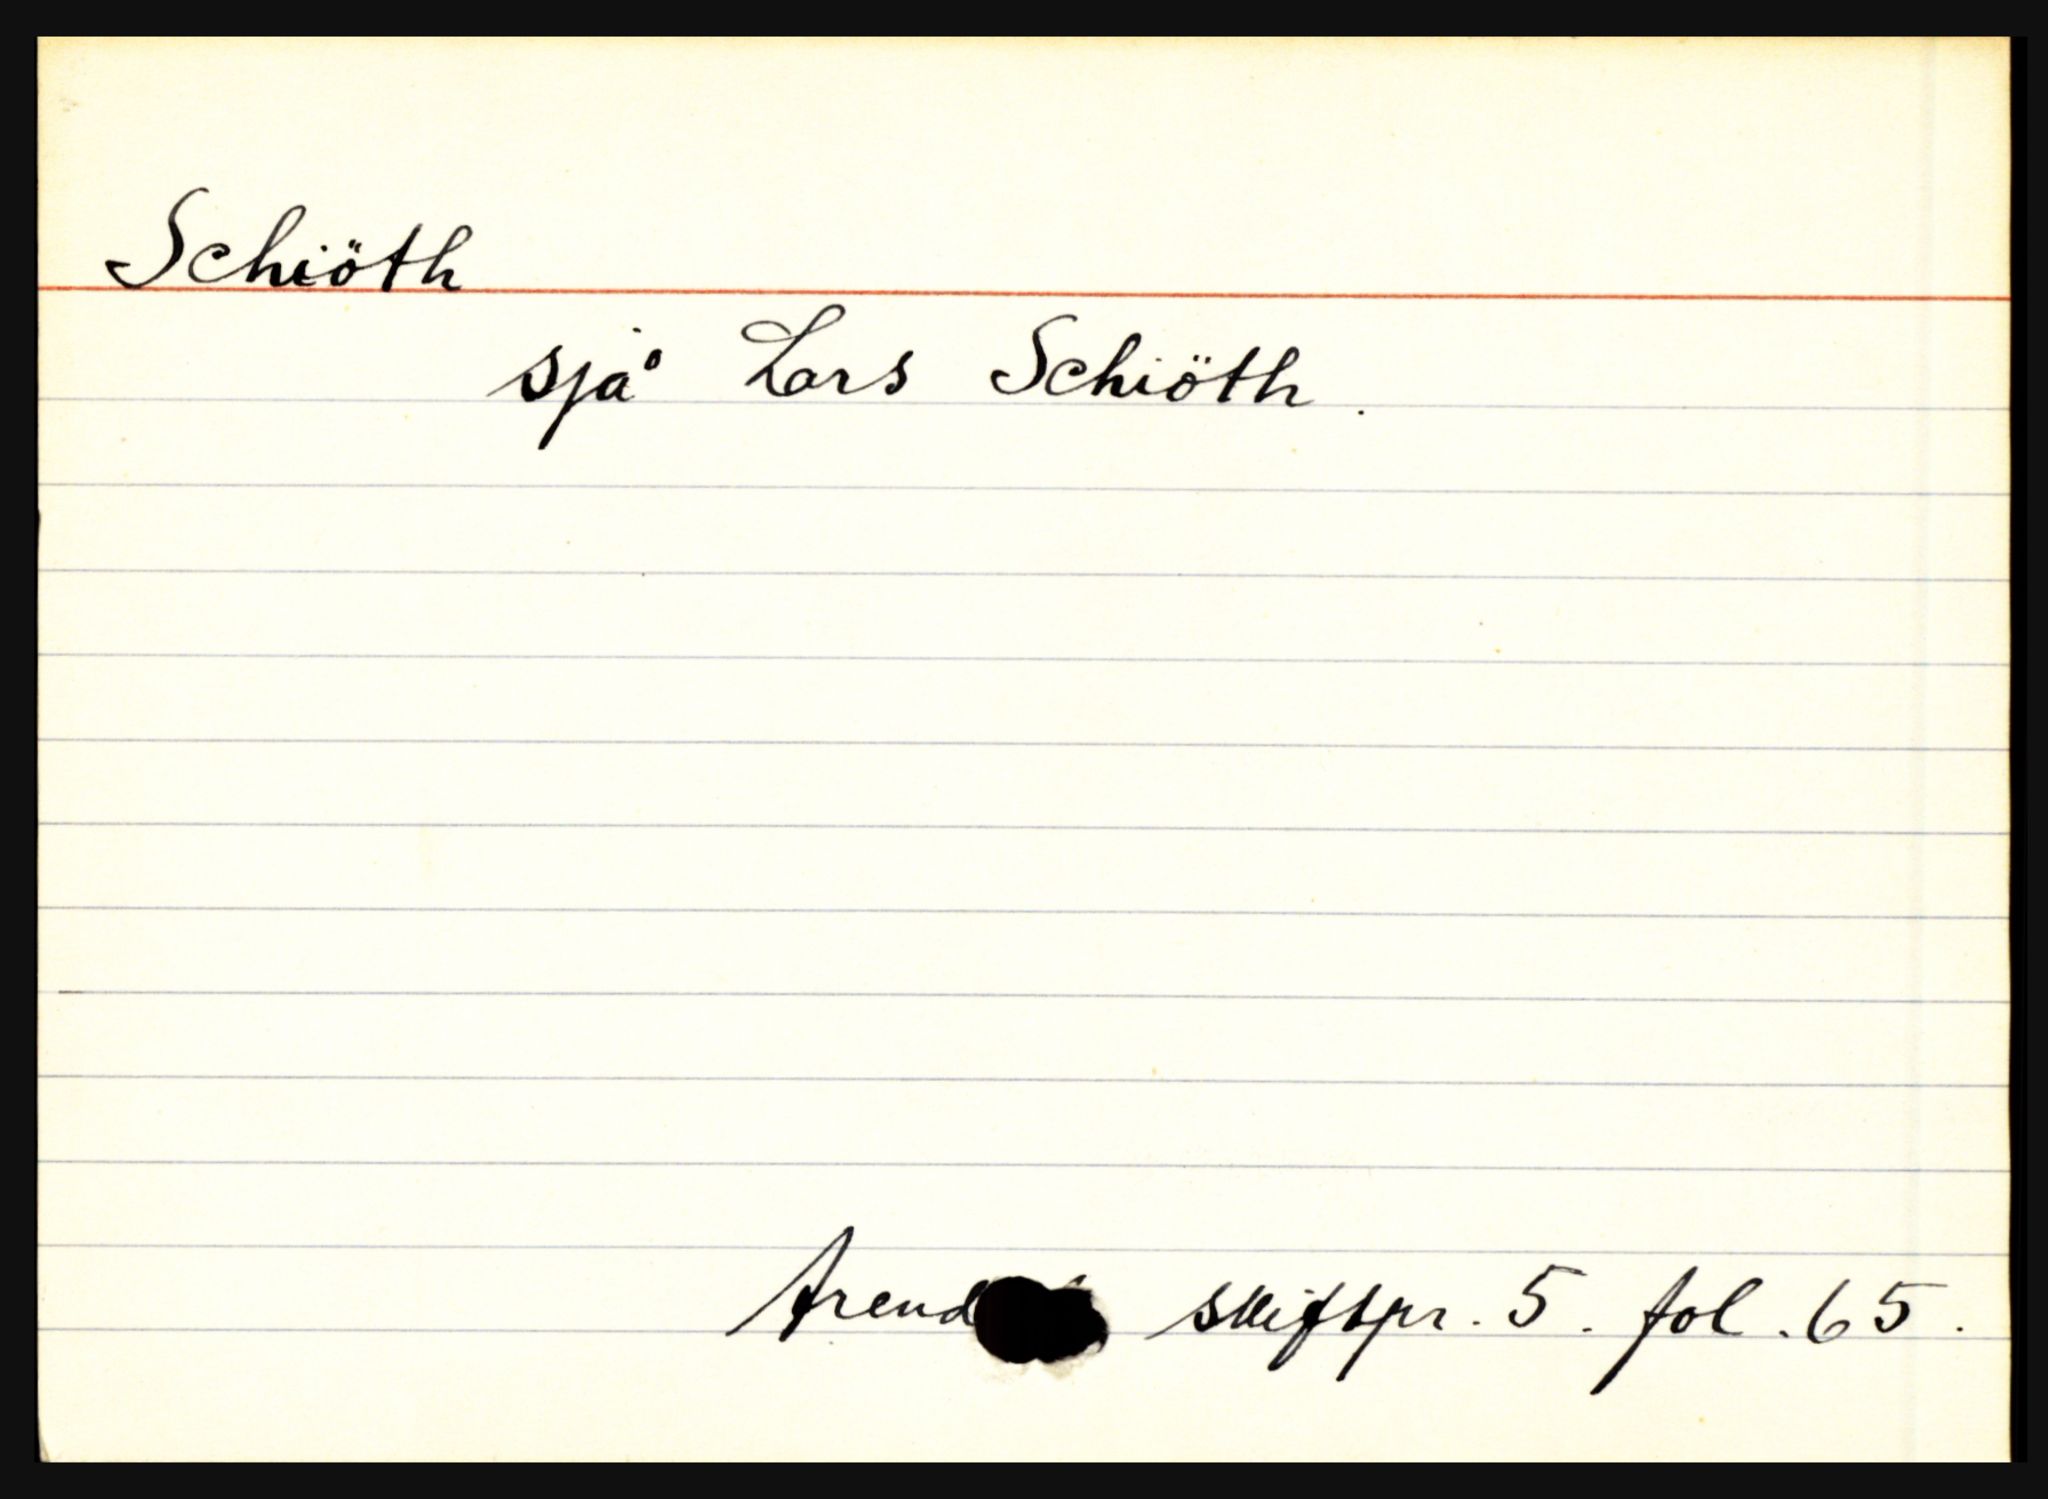 Schiöth
sjå Lars Schiöth.
skiftspr. 5. fol. 65.